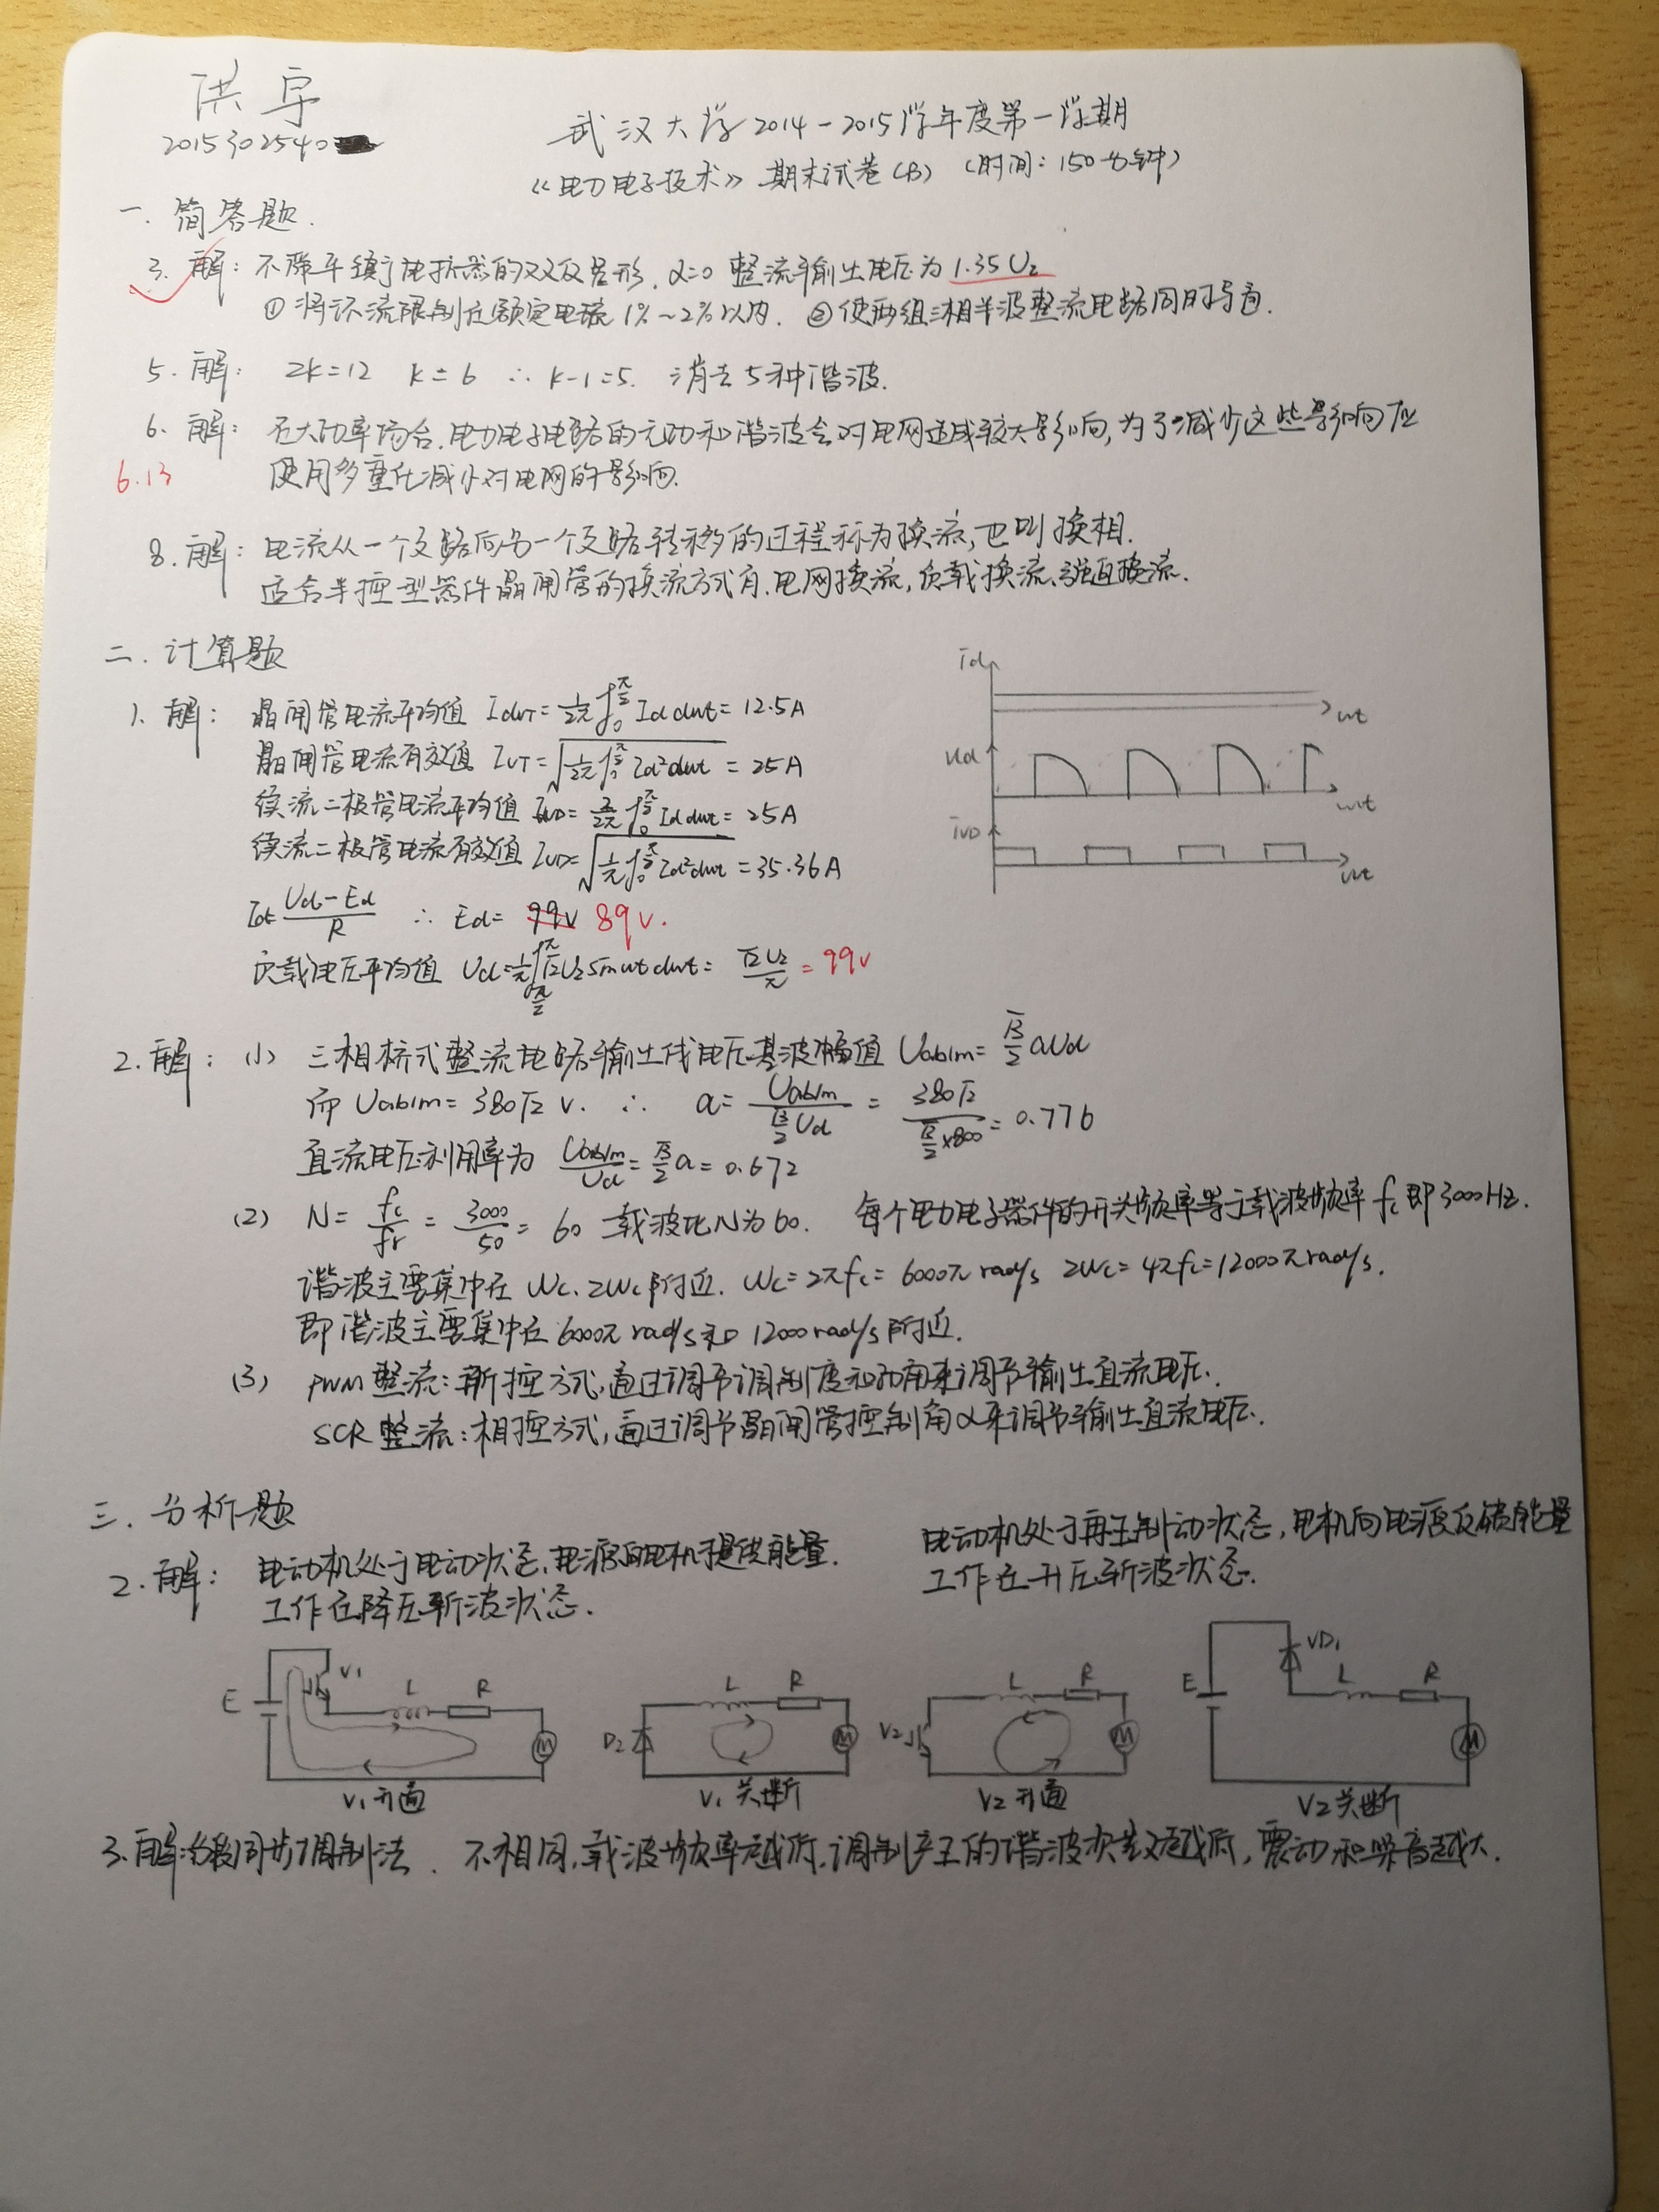 洪宇
2015302540
武汉大学2014-2015学年度第一学期
《电力电子技术》期末试卷(B) (时间:150分钟)
一. 简答题.
3. 解: 不带平衡电抗器的双反星形. α=0 整流输出电压为 1.35U₂
① 将环流限制在额定电流 1%~2%以内. ② 使两组三相半波整流电路同时导通.
5. 解: 2k=12 k=6 ∴ k-1=5. 消去5种谐波.
6. 解: 在大功率场合.电力电子电路的无功和谐波会对电网造成较大影响,为了减少这些影响应
6.13 使用多重化减小对电网的影响.
8. 解: 电流从一个支路向另一个支路转移的过程称为换流,也叫换相.
适合半控型器件晶闸管的换流方式有.电网换流,负载换流、强迫换流.
二. 计算题
1. 解: 晶闸管电流平均值 IdVT=1/2π ∫₀^(π/2) Id dwt = 12.5A
晶闸管电流有效值 IVT=√(1/2π ∫₀^(π/2) Id²dwt) = 25A
续流二极管电流平均值 IdVD= 2/2π ∫₀^(π/2) Id dwt = 25A
续流二极管电流有效值 IVD=√(1/π ∫₀^(π/2) Id²dwt) = 35.36A
Id= (Ud-Ed)/R ∴ Ed= 99V 89V.
负载电压平均值 Ud=1/π ∫_(π/2)^π √2U₂ sinwt dwt = √2U₂/π = 99V
id wt
Ud wt
iVD wt
2. 解: (1) 三相桥式整流电路输出线电压基波幅值 Uab1m= √3/2 aUd
而 Uab1m= 380√2 V. ∴ a= Uab1m/(√3/2 Ud) = 380√2/(√3/2×800) = 0.776
直流电压利用率为 Uab1m/Ud = √3/2 a = 0.672
(2) N= fc/fr = 3000/50 = 60 载波比N为60. 每个电力电子器件的开关频率等于载波频率 fc 即3000HZ.
谐波主要集中在 Wc、2Wc附近. Wc=2πfc= 6000π rad/s 2Wc= 4πfc=12000π rad/s.
即谐波主要集中在 6000π rad/s 和 12000 rad/s 附近.
(3) PWM整流: 斩控方式,通过调节调制度和功角来调节输出直流电压.
SCR整流: 相控方式,通过调节晶闸管控制角α来调节输出直流电压.
三. 分析题
2. 解: 电动机处于电动状态,电源向电机提供能量.
工作在降压斩波状态.
电动机处于再生制动状态,电机向电源反馈能量
工作在升压斩波状态.
E V1 L R M
V1开通
D2 L R M
V1关断
V2 L R M
V2开通
E VD1 L R M
V2关断
3. 解: 分段同步调制法. 不相同,载波频率越低,调制产生的谐波次数越低,震动和噪音越大.